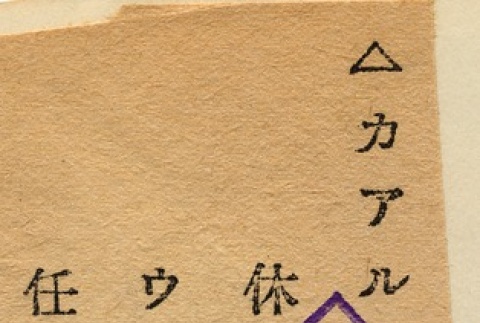 △カアル
休
ウ
任